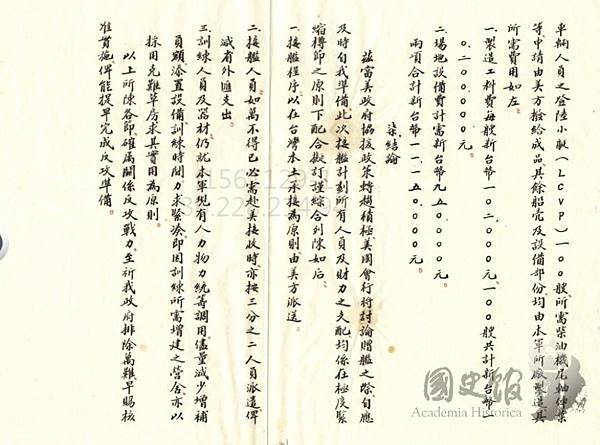 車輛人員之登陸小艇(LCVP)一〇〇艘所需柴油機尾軸俥葉
等申請由美方撥給成品其餘船壳及設備部份均由本軍所厰製造其
所需費用如左
一、製造工料費每艘新台幣一〇二〇〇〇元一〇〇艘共計新台幣一
〇.二〇〇〇〇〇元
二、場地設備費計需新台幣九五〇〇〇〇元
兩項合計新台幣一一.一五〇〇〇〇元
柒結論
茲當美政府協援政策轉趨積極美國會行將討論贈艦之際自應
及時自我準備此次接艦計劃所有人員及財力之支配均係在極度緊
縮樽節之原則下配合擬訂謹綜合列陳如后
一、接艦程序以在台灣本土承接為原則由美方派送
二、接艦人員如萬不得已必需赴美接收時亦按三分之二人員派遣俾
減省外匯支出
三、訓練人員及器材仍就本軍現有人力物力統籌調用儘量減少增補
員額添置設備訓練時間力求緊湊即因訓練所需增建之營舍亦以
採用克難草房求其實用為原則
以上所陳各節確屬關係反攻戰力至祈我政府排除萬難早賜核
准實施俾能提早完成反攻準備。
國史館
Academia Historica